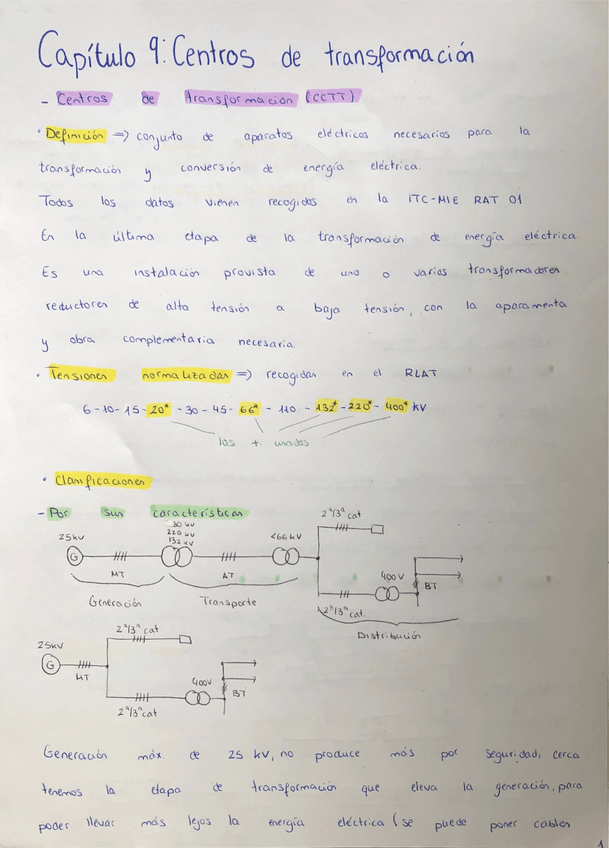 Capítulo 9: Centros de transformación
- Centros de transformación (CCTT)
· Definición => conjunto de aparatos eléctricos necesarios para la
transformación y conversión de energía eléctrica.
Todos los datos vienen recogidos en la iTC-MIE RAT 01
En la última etapa de la transformación de energía eléctrica.
Es una instalación provista de uno o varios transformadores
reductores de alta tensión a baja tensión, con la aparamenta
y obra complementaria necesaria.
· Tensiones normalizadas => recogidas en el RLAT
6-10-15-20*-30-45-66*-110-132*-220*-400* kV
las + usadas
· Clasificaciones
- Por sus características
25kV
G
MT
30 kV
220 kV
132 kV
AT
<66 kV
2ª/3ª cat
400V
BT
2ª/3ª cat.
Generación
Transporte
Distribución
25kV
G
MT
2ª/3ª cat
400V
BT
2ª/3ª cat
Generación máx. de 25 kV, no produce más por seguridad, cerca
tenemos la etapa de transformación que eleva la generación, para
poder llevar más lejos la energía eléctrica (se puede poner cables
1